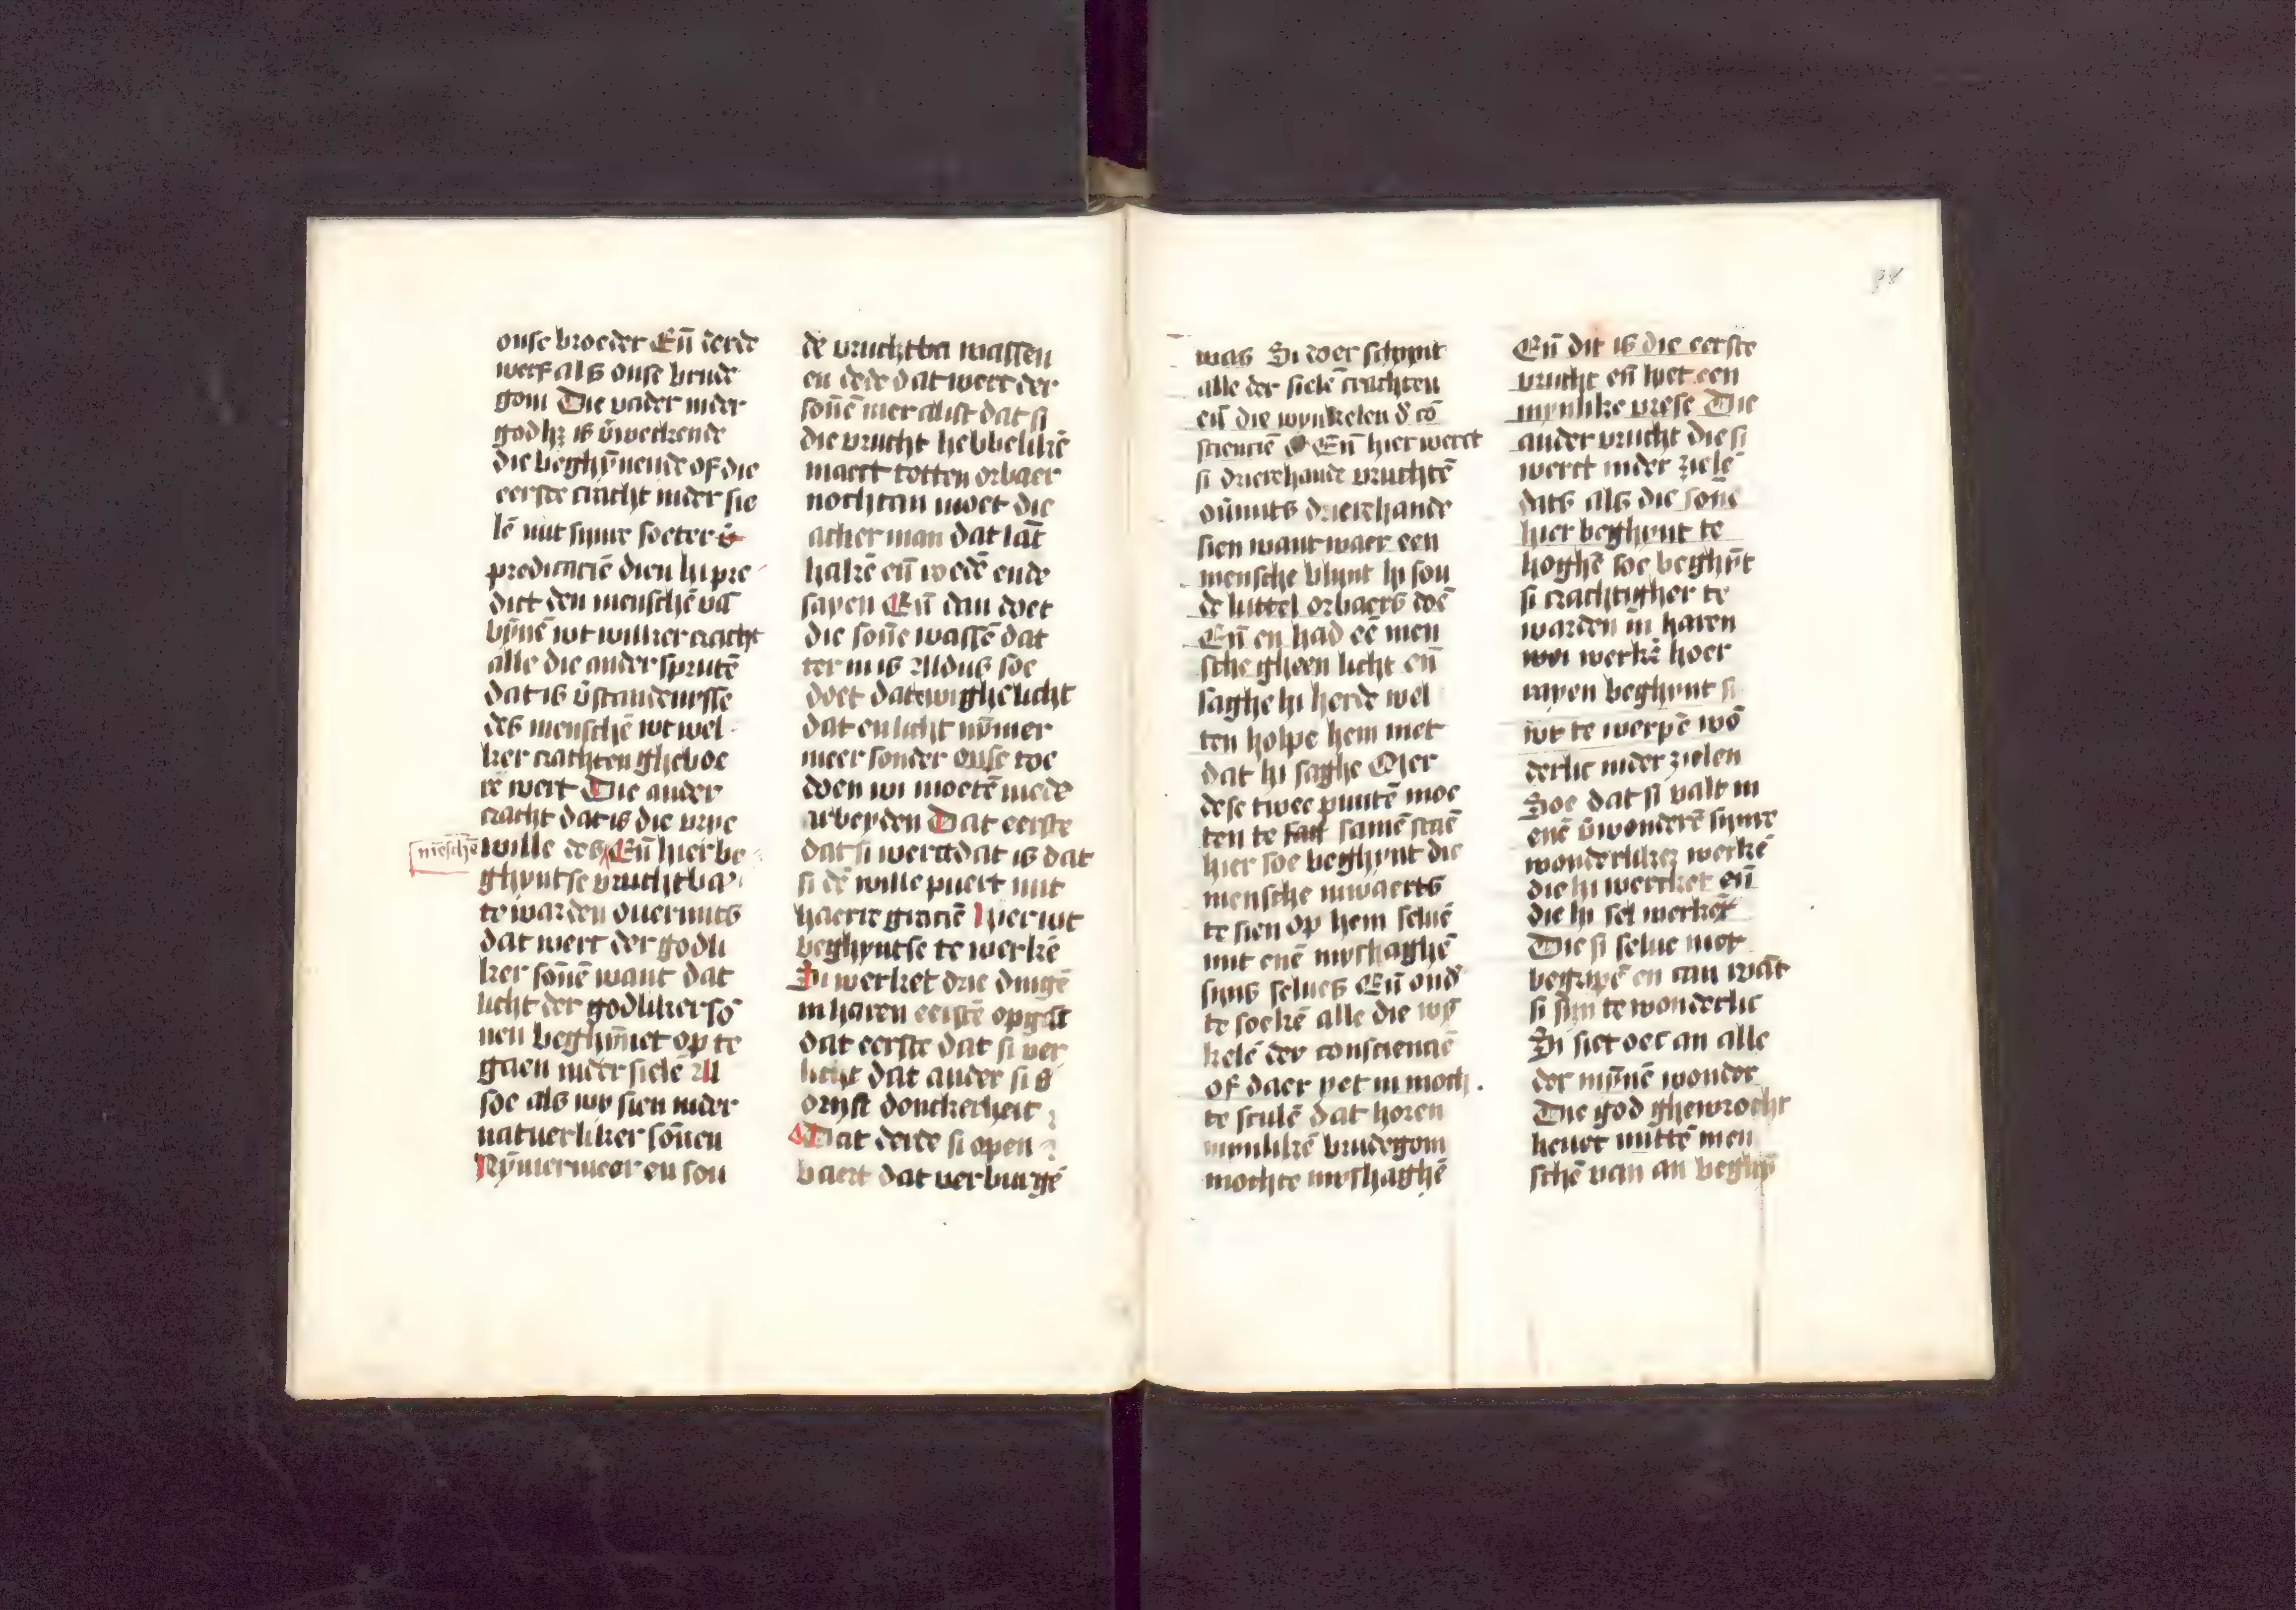 onse broeder Eñ derde
werf als onse brude
gom Die vader inder
die beghȳnende of die
eerste cracht inder sie
lē mit sijnre soeter
predicaciē dien hi pre
dict den menschē vā
bȳnē wt wilker cracht
alle die ander sprutē
dat is v̄standenisse
des menschē wt wel
ker crachten gheboe
re wert Die ander
cracht dat is die vrye
mēschē wille des Eñ hier be
ghyntse vruchtba
te warden ouermits
dat wert der godli
ker sōnē want dat
licht der godliker sō
nen beghīnet op te
gaen inder sielē All
soe als wy sien inder
natuerliker sōnen
Nȳmermeer en sou
dē vruchtba wassen
en dede dat wert der
sōnē mer al ist dat si
die vrucht hebbelikē
maect totten orbaer
nochtan moet die
acker man dat lāt
hakē eñ wedē ende
sayen Eñ dan doet
die sōne wassē dat
ter in is Aldus soe
doet dat ewighe licht
dat en licht nȳmer
meer sonder onse toe
doen wi moetē mede
arbeyden Dat eerste
dat si werct dat is dat
si dē wille puert mit
haerre graciē Hier wt
beghyntse te werkē
Si werket drie dingē
in haren eerstē opgāc
dat eerste dat si ver
licht dat ander si v̄
drijft donckerheit
Dat derde si open
baert dat verburgē
was Si doer schynt
alle der sielē crachten
eñ die wynkelen d' cō
sciencie Eñ hier werct
si drierehande vruchtē
ov̄mits drierehande
sien want waer een
mensche blynt hi sou
de luttel orbaers doē
Eñ en had eē men
sche gheen licht eñ
saghe hi herde wel
ten holpe hem niet
dat hi saghe Mer
dese twee puntē moe
ten te samē staē
hier soe beghynt die
mensche inwaerts
te sien op hem seluē
mit enē myshaghē
sijns selues Eñ ond'
te soekē alle die wy
kelē der consciencie
of daer yet in moch
te sculē dat horen
mynlikē brudegom
mochte myshaghē
Eñ dit is die eerste
vrucht eñ het een
mynlike vrese Die
ander vrucht die si
werct inder zielē
dats als die sōne
hier beghynt te
hoghē soe beghȳt
si crachtigher te
warden in haren
werkē hoer
rayen beghynt si
wt te werpē wō
derlic inder zielen
Soe dat si valt in
enē v̄wonderē synre
wonderliker werkē
die hi wercket eñ
die hi sel werkē
Die si selue niet
begripē en can wāt
si sijn te wonderlic
Si siet oec an alle
der mȳnē wonder
Die god ghewrocht
heuet mittē men
schē van an beghȳ